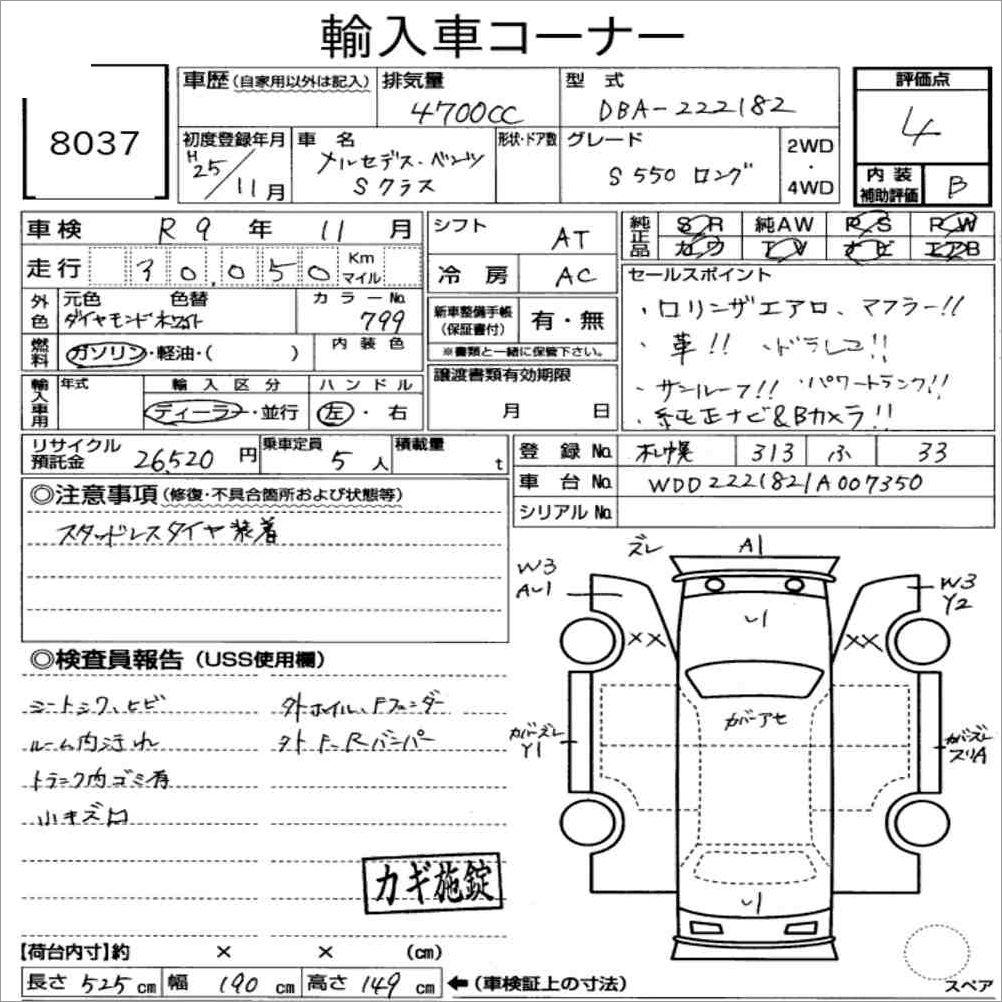 輸入車コーナー
8037
車歴(自家用以外は記入) 排気量 4700cc 型式 DBA-222182 評価点 4
初度登録年月 H25/11月 車名 メルセデス・ベンツ Sクラス 形状・ドア数 グレード S550 ロング 2WD・4WD 内装補助評価 B
車検 R9年 11月 シフト AT 純正品 SR 純AW PS PW
走行 30,050 Km マイル 冷房 AC カワ TV ナビ エアB
外色 元色 色替 ダイヤモンドホワイト カラーNo. 799
新車整備手帳(保証書付) 有・無
※書類と一緒に保管下さい。
セールスポイント
・ロリンザエアロ、マフラー!!
・革!! ・ドラレコ!!
・サンルーフ!! ・パワートランク!!
・純正ナビ&Bカメラ!!
燃料 ガソリン・軽油・( ) 内装色
譲渡書類有効期限 月 日
輸入車用 年式 輸入区分 ディーラー・並行 ハンドル 左・右
リサイクル預託金 26,520円 乗車定員 5人 積載量 t
登録No. 札幌 313 ふ 33
車台No. WDD2221821A007350
シリアルNo.
◎注意事項(修復・不具合箇所および状態等)
スタッドレスタイヤ装着
ズレ A1
W3 AU1
W3 Y2
U1
××
××
◎検査員報告(USS使用欄)
シートシワ、ヒビ
ルーム内汚れ
トランク内ゴミ有
小キズ凹
外ホイル、Fフェンダー
外F、Rバンパー
カバーアセ
カバーズレ Y1
カバーズレ スリA
U1
カギ施錠
【荷台内寸】約 × × (cm)
長さ 525cm 幅 190cm 高さ 149cm ←(車検証上の寸法)
スペア